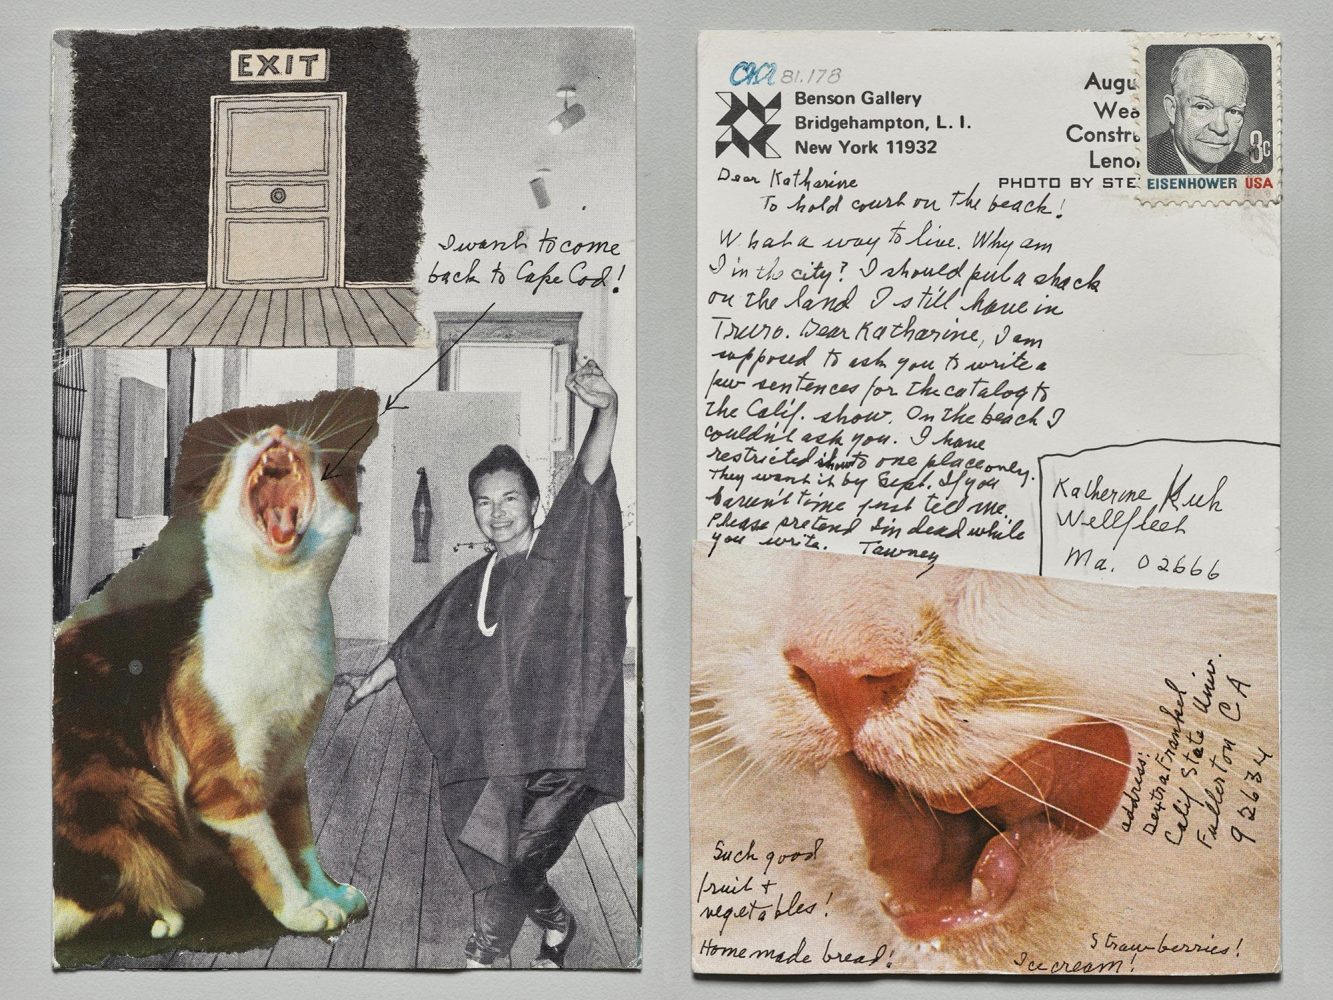 EXIT
I want to come
back to Cape Cod!
CKA 81.178
Benson Gallery
Bridgehampton, L. I.
New York 11932
Augu
Wea
Constru
Lenor
PHOTO BY STE
EISENHOWER USA
Dear Katharine
To hold court on the beach!
What a way to live. Why am
I in the city? I should put a shack
on the land I still have in
Truro. Dear Katharine, I am
supposed to ask you to write a
few sentences for the catalog to
the Calif. show. On the beach I
couldn't ask you. I have
restricted to one place only.
They want it by Sept. If you
haven't time just tell me.
Please pretend I'm dead while
you write. Tawney
Katherine Kuh
Wellfleet
Ma. 02666
address:
Dextra Frankel
Calif State Univ.
Fullerton CA
92634
Such good
fruit +
vegetables!
Homemade bread!
Strawberries!
Ice cream!